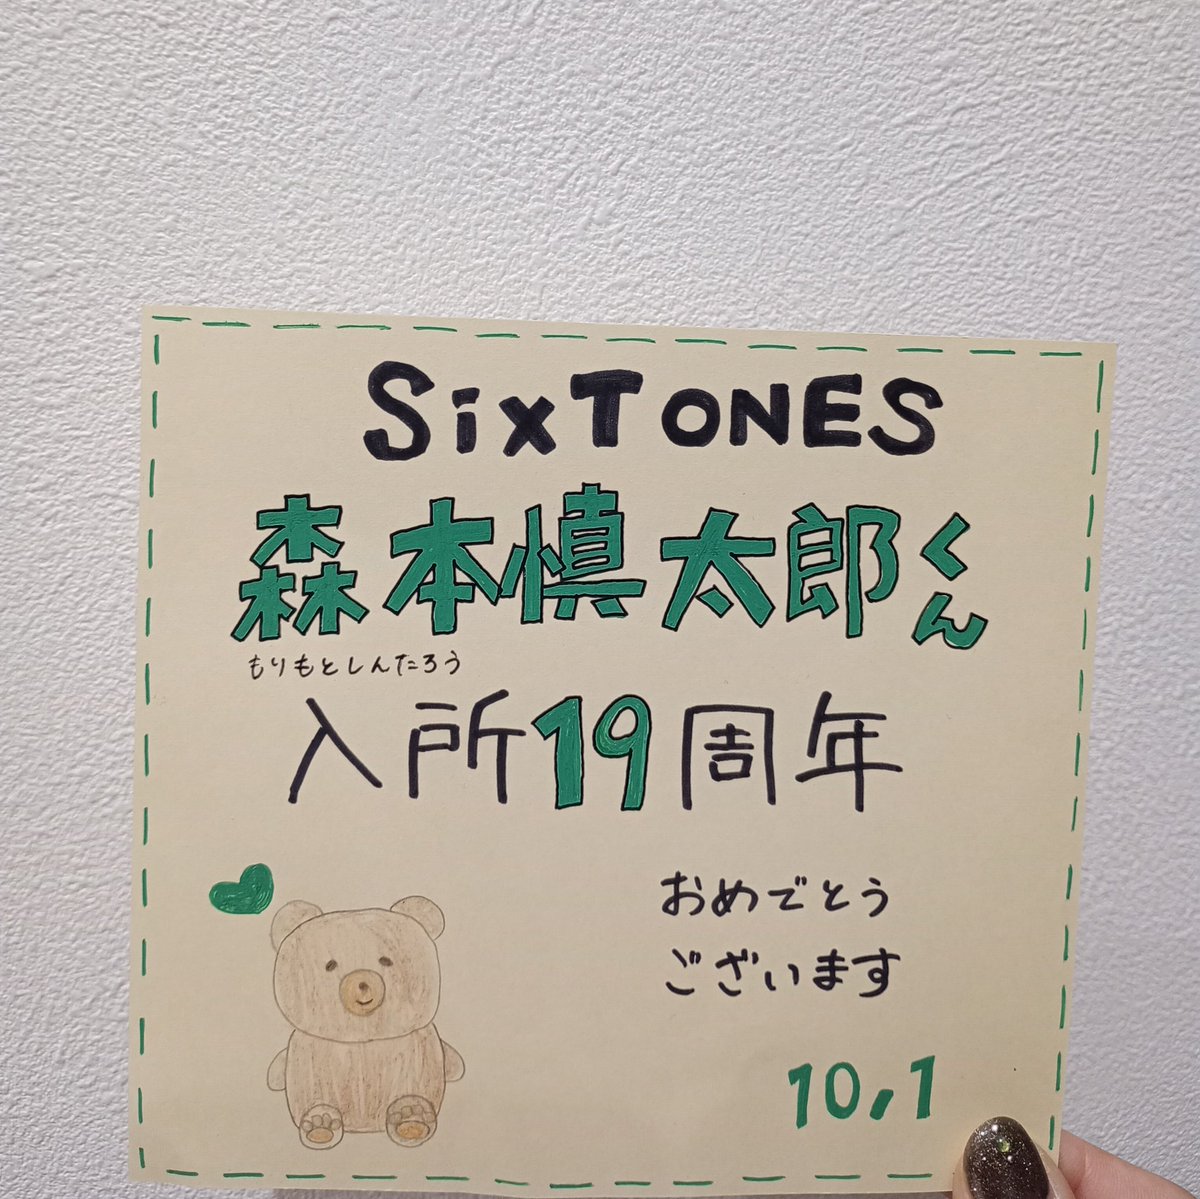 SixTONES
森本慎太郎くん
もりもとしんたろう
入所19周年
おめでとう
ございます
10,1